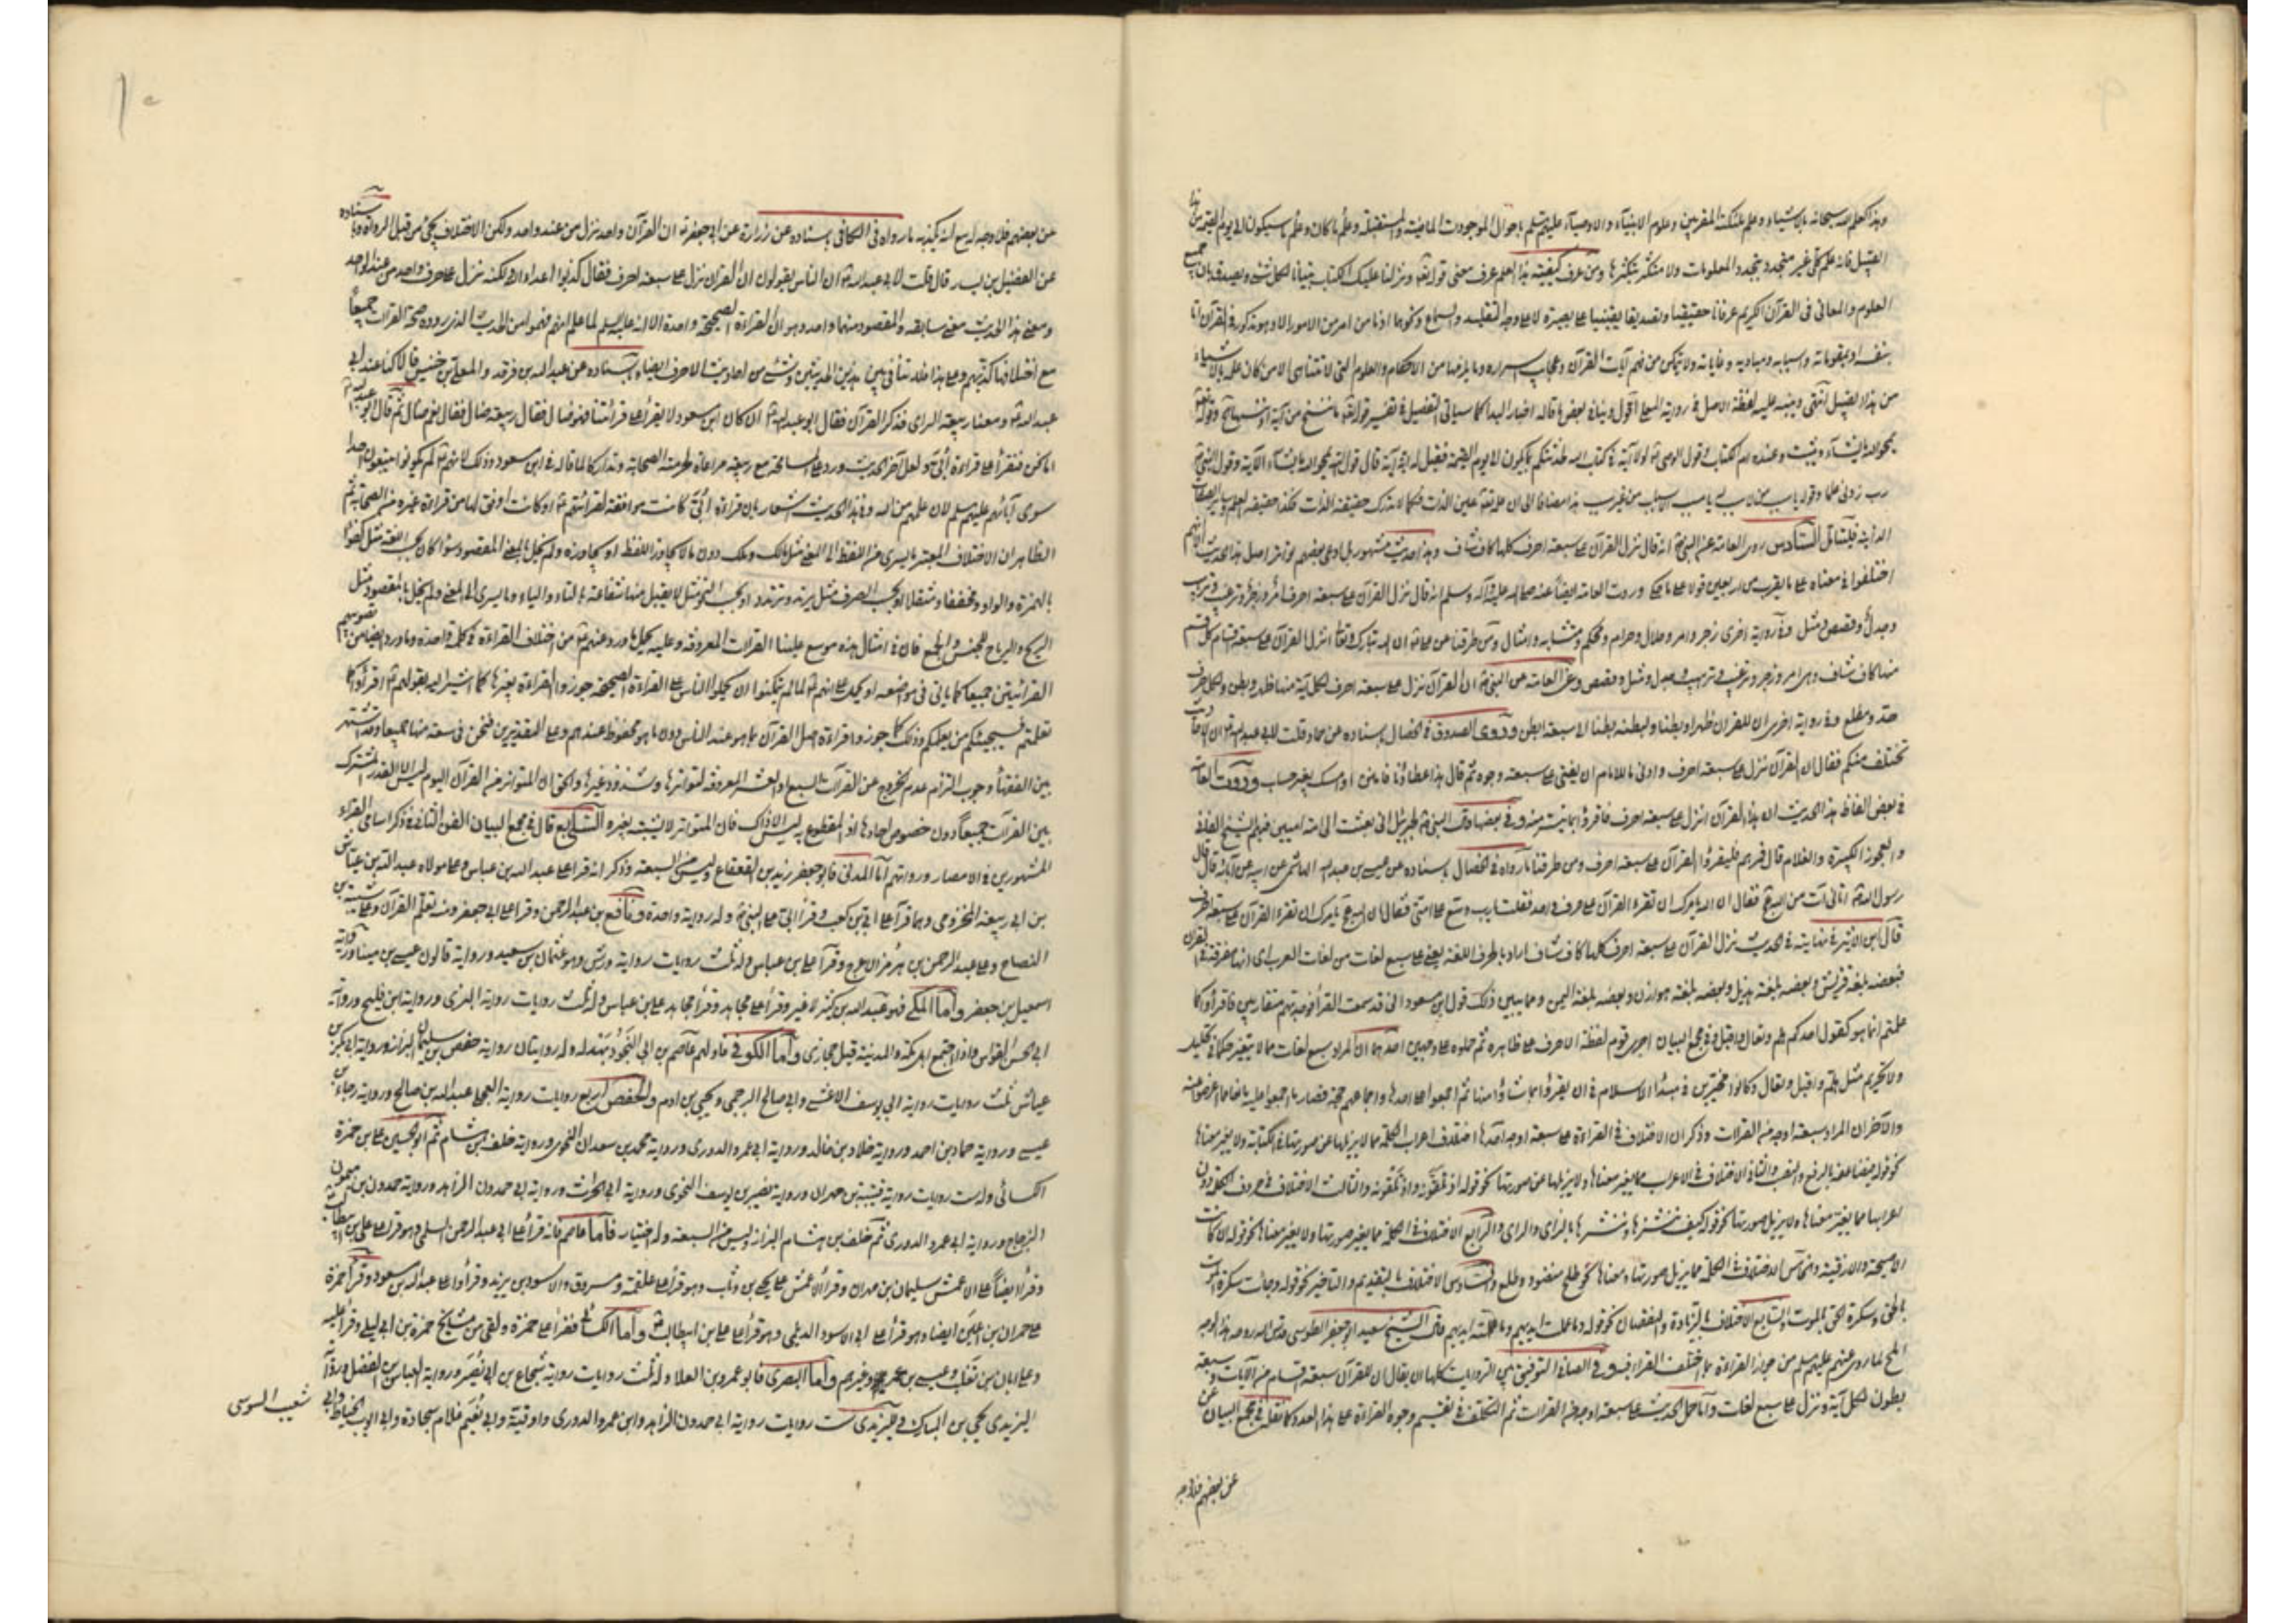 وهذا كعلم الله سبحانه بالأشياء وعلم ملئكته المقربين وعلوم الانبياء والاوصياء عليهم السلم باحوال الموجودات الماضية والمستقبلة وعلم ما كان وعلم ما سيكون الى يوم القيمة من هذا
القبيل فانه علم كلى غير متجدد بتجدد المعلومات ولا متكثر بتكثرها ومن عرف كيفية هذا العلم عرف معنى قوله تعالى ونزلنا عليك الكتاب تبيانا لكل شئ ويصدق بان جميع
العلوم والمعانى فى القرآن الكريم عرفانا حقيقيا وتصديقا يقينيا على بصيرة لا على وجه التقليد والسماع ونحوهما اذ ما من امر من الامور الا وهو مذكور فى القرآن اما
بنفسه او بمقوماته واسبابه ومباديه وغاياته ولا يتمكن من فهم آيات القرآن وعجايب اسراره وما يلزمها من الاحكام والعلوم التى لا تتناهى الا من كان علمه بالاشياء
من هذا القبيل انتهى وينبه عليه لفظة الاصل فى رواية المعلى اقول وينافى بعض ما قاله اخبار البدا كما سياتى التفصيل فى تفسير قوله تعالى ما ننسخ من آية او ننسها وقوله تعالى
يمحو الله ما يشاء ويثبت وعنده ام الكتاب وقول الوصى لولا آية فى كتاب الله لحدثتكم بما يكون الى يوم القيمة فقيل له اية آية قال قول الله يمحو الله ما يشاء الآية وقول النبى
رب زدنى علما وقوله يا من لا سبب له يا مسبب الاسباب من غير سبب هذا مضافا الى ان علمه تعالى عين الذات فكما لا تدرك حقيقة الذات فكذا حقيقة العلم وساير الصفات
الذاتية فليتامل السادس روى العامة عن النبى انه قال نزل القرآن على سبعة احرف كلها كاف شاف وهذا حديث مشهور بل ادعى بعضهم تواتر اصل هذا الحديث الا انهم
اختلفوا فى معناه على ما يقرب من اربعين قولا على ما حكى وروت العامة ايضا عنه صلى الله عليه وآله وسلم انه قال نزل القرآن على سبعة احرف امر وزجر وترغيب وترهيب
وجدل وقصص ومثل وفى رواية اخرى زجر وامر وحلال وحرام ومحكم ومتشابه وامثال ومن طرقنا عن على ان الله تبارك وتعالى انزل القرآن على سبعة اقسام كل قسم
منها كاف شاف وهى امر وزجر وترغيب وترهيب وجدل ومثل وقصص وعن العامة عن النبى ان القرآن نزل على سبعة احرف لكل آية منها ظهر وبطن ولكل حرف
حد ومطلع وفى رواية اخرى ان للقرآن ظهرا وبطنا ولبطنه بطنا الى سبعة ابطن وروى الصدوق فى الخصال باسناده عن حماد قلت لابى عبد الله ان الاحاديث
تختلف منكم فقال ان القرآن نزل على سبعة احرف وادنى ما للامام ان يفتى على سبعة وجوه ثم قال هذا عطاؤنا فامنن او امسك بغير حساب وروت العامة
فى بعض الفاظ هذا الحديث ان هذا القرآن انزل على سبعة احرف فاقرؤا بما تيسر منه وفى بعضها قال النبى لجبرئيل انى بعثت الى امة اميين فيهم الشيخ الفانى
والعجوز الكبيرة والغلام قال فمرهم فليقرؤا القرآن على سبعة احرف ومن طرقنا ما رواه فى الخصال باسناده عن عيسى بن عبد الله الهاشمى عن ابيه عن آبائه قال قال
رسول الله اتانى آت من الله فقال ان الله يامرك ان تقرء القرآن على حرف واحد فقلت يا رب وسع على امتى فقال ان الله يامرك ان تقرء القرآن على سبعة احرف
قال ابن الاثير فى نهايته فى الحديث نزل القرآن على سبعة احرف كلها كاف شاف اراد بالحرف اللغة يعنى على سبع لغات من لغات العرب اى انها مفرقة فى القرآن
فبعضه بلغة قريش وبعضه بلغة هذيل وبعضه بلغة هوازن وبعضه بلغة اليمن ومما يبين ذلك قول ابن مسعود انى قد سمعت القراء فوجدتهم متقاربين فاقرؤا كما
علمتم انما هو كقول احدكم هلم وتعال واقبل وفى مجمع البيان اجرى قوم لفظة الاحرف على ظاهره ثم حملوه على وجهين احدهما ان المراد سبع لغات مما لا يتغير حكما فى تحليل
ولا تحريم مثل هلم واقبل وتعال وكانوا مخيرين فى مبدأ الاسلام فى ان يقرؤا بما شاؤا منها ثم اجمعوا على احدها واجماعهم حجة فصار ما اجمعوا عليه مانعا مما اعرضوا عنه
والآخر ان المراد سبعة اوجه من القرات وذكر ان الاختلاف فى القراءة على سبعة اوجه احدها اختلاف اعراب الكلمة مما لا يزيلها عن صورتها فى الكتابة ولا يغير معناها
نحو قوله فيضاعفه بالرفع والنصب والثانى الاختلاف فى الاعراب مما يغير معناها ولا يزيلها عن صورتها نحو قوله اذ تلقونه واذ تلقونه والثالث الاختلاف فى حروف الكلمة دون
اعرابها مما يغير معناها ولا يزيل صورتها نحو قوله كيف ننشزها وننشرها بالزاى والراى والرابع الاختلاف فى الكلمة مما يغير صورتها ولا يغير معناها نحو قوله ان كانت
الا صيحة والازقية والخامس الاختلاف فى الكلمة مما يزيل صورتها ومعناها نحو طلح منضود وطلع والسادس الاختلاف بالتقديم والتاخير نحو قوله وجاءت سكرة الموت
بالحق وسكرة الحق بالموت والسابع الاختلاف بالزيادة والنقصان نحو قوله وما عملت ايديهم وما عملته ايديهم قال الشيخ السعيد ابو جعفر الطوسى قدس الله روحه هذا الوجه
املح لما روى عنهم عليهم السلم من جواز القراءة بما اختلف القراء فيه وفى الصافى التوفيق بين الروايات كلها ان يقال ان للقرآن سبعة اقسام من الآيات وسبعة
بطون لكل آية ونزل على سبع لغات واما حمل الحديث على سبعة اوجه من القرات ثم التكلف فى تقسيم وجوه القراءة على هذا العدد كما نقله فى مجمع البيان عن
عن بعضهم فلا وجه
عن بعضهم فلا وجه له مع انه يكذبه ما رواه فى الكافى باسناده عن زرارة عن ابى جعفر ان القرآن واحد نزل من عند واحد ولكن الاختلاف يجئ من قبل الرواة وباسناده
عن الفضيل بن يسار قال قلت لابى عبد الله ان الناس يقولون ان القرآن نزل على سبعة احرف فقال كذبوا اعداء الله لكنه نزل على حرف واحد من عند الواحد
ومعنى هذا الحديث معنى سابقه والمقصود منهما واحد وهو ان القراءة الصحيحة واحدة الا انه عليه السلم لما علم انهم فهموا من الحديث الذى رووه صحة القرات جميعا
مع اختلافها كذبهم وعلى هذا فلا تنافى بين هذين الحديثين وشئ من احاديث الاحرف ايضا وباسناده عن عبد الله بن فرقد والمعلى بن خنيس قالا كنا عند ابى
عبد الله ومعنا ربيعة الراى فذكر القرآن فقال ابو عبد الله ان كان ابن مسعود لا يقرء على قرائتنا فهو ضال فقال ربيعة ضال فقال نعم ضال ثم قال ابو عبد الله
اما نحن فنقرأ على قراءة ابى ولعل آخر الحديث ورد على المسامحة مع ربيعة مراعاة لحرمة الصحابة وتداركا لما قاله فى ابن مسعود وذلك لانهم لم يكونوا يتبعون احدا
سوى آبائهم عليهم السلم لان علمهم من الله وفى هذا الحديث اشعار بان قراءة ابى كانت موافقة لقرائتهم او كانت اوفق لها من قراءة غيره من الصحابة ثم
الظاهر ان الاختلاف المعتبر ما يسرى من اللفظ الى المعنى مثل مالك وملك دون ما لا يجاوز اللفظ او يجاوزه ولم يخل بالمعنى المقصود سواء كان بحسب اللغة مثل كفوا
بالهمزة والواو ومخففا ومثقلا او بحسب الصرف مثل يرتد ويرتدد او بحسب النحو مثل لا يقبل منها شفاعة بالتاء والياء وما يسرى الى المعنى ولم يخل بالمقصود مثل
الريح والرياح للجنس والجمع فان فى امثال هذه موسع علينا القرات المعروفة وعليه يحمل ما ورد عنهم من اختلاف القراءة فى كلمة واحدة وما ورد ايضا من تصويبهم
القرائتين جميعا كما ياتى فى مواضعه او يحمل على انهم لما لم يتمكنوا ان يحملوا الناس على القراءة الصحيحة جوزوا القراءة بغيرها كما اشير اليه بقولهم اقرأوا كما
تعلمتم فسيجيئكم من يعلمكم وذلك كما جوزوا قراءة اصل القرآن بما هو عند الناس دون ما هو محفوظ عندهم وعلى التقديرين فنحن فى سعة منها جميعا وقد اشتهر
بين الفقهاء وجوب التزام عدم الخروج عن القرات السبع او العشر المعروفة لتواترها وشذوذ غيرها والحق ان المتواتر من القرآن اليوم ليس الا القدر المشترك
بين القرات جميعا دون خصوص احادها اذ المقطوع به ليس الا ذاك فان المتواتر لا يشتبه بغيره السابع قال فى مجمع البيان الفن الثانى فى ذكر اسامى القراء
المشهورين فى الامصار ورواتهم اما المدنى فابو جعفر يزيد بن القعقاع وليس من السبعة وذكر انه قرا على عبد الله بن عباس وعلى مولاه عبد الله بن عياش
بن ابى ربيعة المخزومى وهما قرآ على ابى بن كعب وقرأ ابى على النبى وله رواية واحدة ونافع بن عبد الرحمن وقرا على ابى جعفر ومنه تعلم القرآن وعلى شيبة بن
النصاح وعلى عبد الرحمن بن هرمز الاعرج وقرآ على ابن عباس وله ثلث روايات رواية ورش وهو عثمان بن سعيد ورواية قالون عيسى بن مينا ورواية
اسمعيل بن جعفر واما المكى فهو عبد الله بن كثير لا غير وقرا على مجاهد وقرأ مجاهد على ابن عباس وله ثلث روايات رواية البزى ورواية ابن فليح ورواية
ابى الحسن القواس واذا اجتمع اهل مكة والمدينة قيل حجازى واما الكوفى فاولهم عاصم بن ابى النجود بهدلة وله روايتان رواية حفص بن سليمان البزاز ورواية ابى بكر بن
عياش ثلث روايات رواية ابى يوسف الاعشى وابى صالح البرجمى ويحيى بن ادم ولحفص اربع روايات رواية العجلى عبد الله بن صالح ورواية رجاء بن
عيسى ورواية حماد بن احمد ورواية خلاد بن خالد ورواية ابى عمر الدورى ورواية محمد بن سعدان النحوى ورواية خلف بن هشام ثم ابو الحسن على بن حمزة
الكسائى وله ست روايات رواية قتيبة بن مهران ورواية نصير بن يوسف النحوى ورواية ابى الحرث ورواية ابى حمدون الزاهد ورواية حمدون بن ميمون
الزجاج ورواية ابى عمر الدورى ثم خلف بن هشام البزاز وليس من السبعة وله اختيار فاما عاصم فانه قرأ على ابى عبد الرحمن السلمى وهو قرا على على بن ابيطالب
وقرأ ايضا على الاعمش سليمان بن مهران وقرأ الاعمش على يحيى بن وثاب وهو قرأ على علقمة ومسروق والاسود بن يزيد وقرأوا على عبد الله بن مسعود وقرأ حمزة
على حمران بن اعين ايضا وهو قرأ على ابى الاسود الديلى وهو قرأ على على بن ابيطالب واما الكسائى فقرأ على حمزة ولقى من مشايخ حمزة بن ابى ليلى وقرأ عليه
وعلى ابان بن تغلب وعيسى بن عمر وغيرهم واما البصرى فابو عمرو بن العلاء وله ثلث روايات رواية شجاع بن ابى نصير ورواية العباس بن الفضل ورواية
اليزيدى يحيى بن المبارك ولليزيدى ست روايات رواية ابى حمدون الزاهد وابن عمر والدورى واوقية وابى نعيم غلام سجادة وابى ايوب الخياط وابى
شعيب السوسى